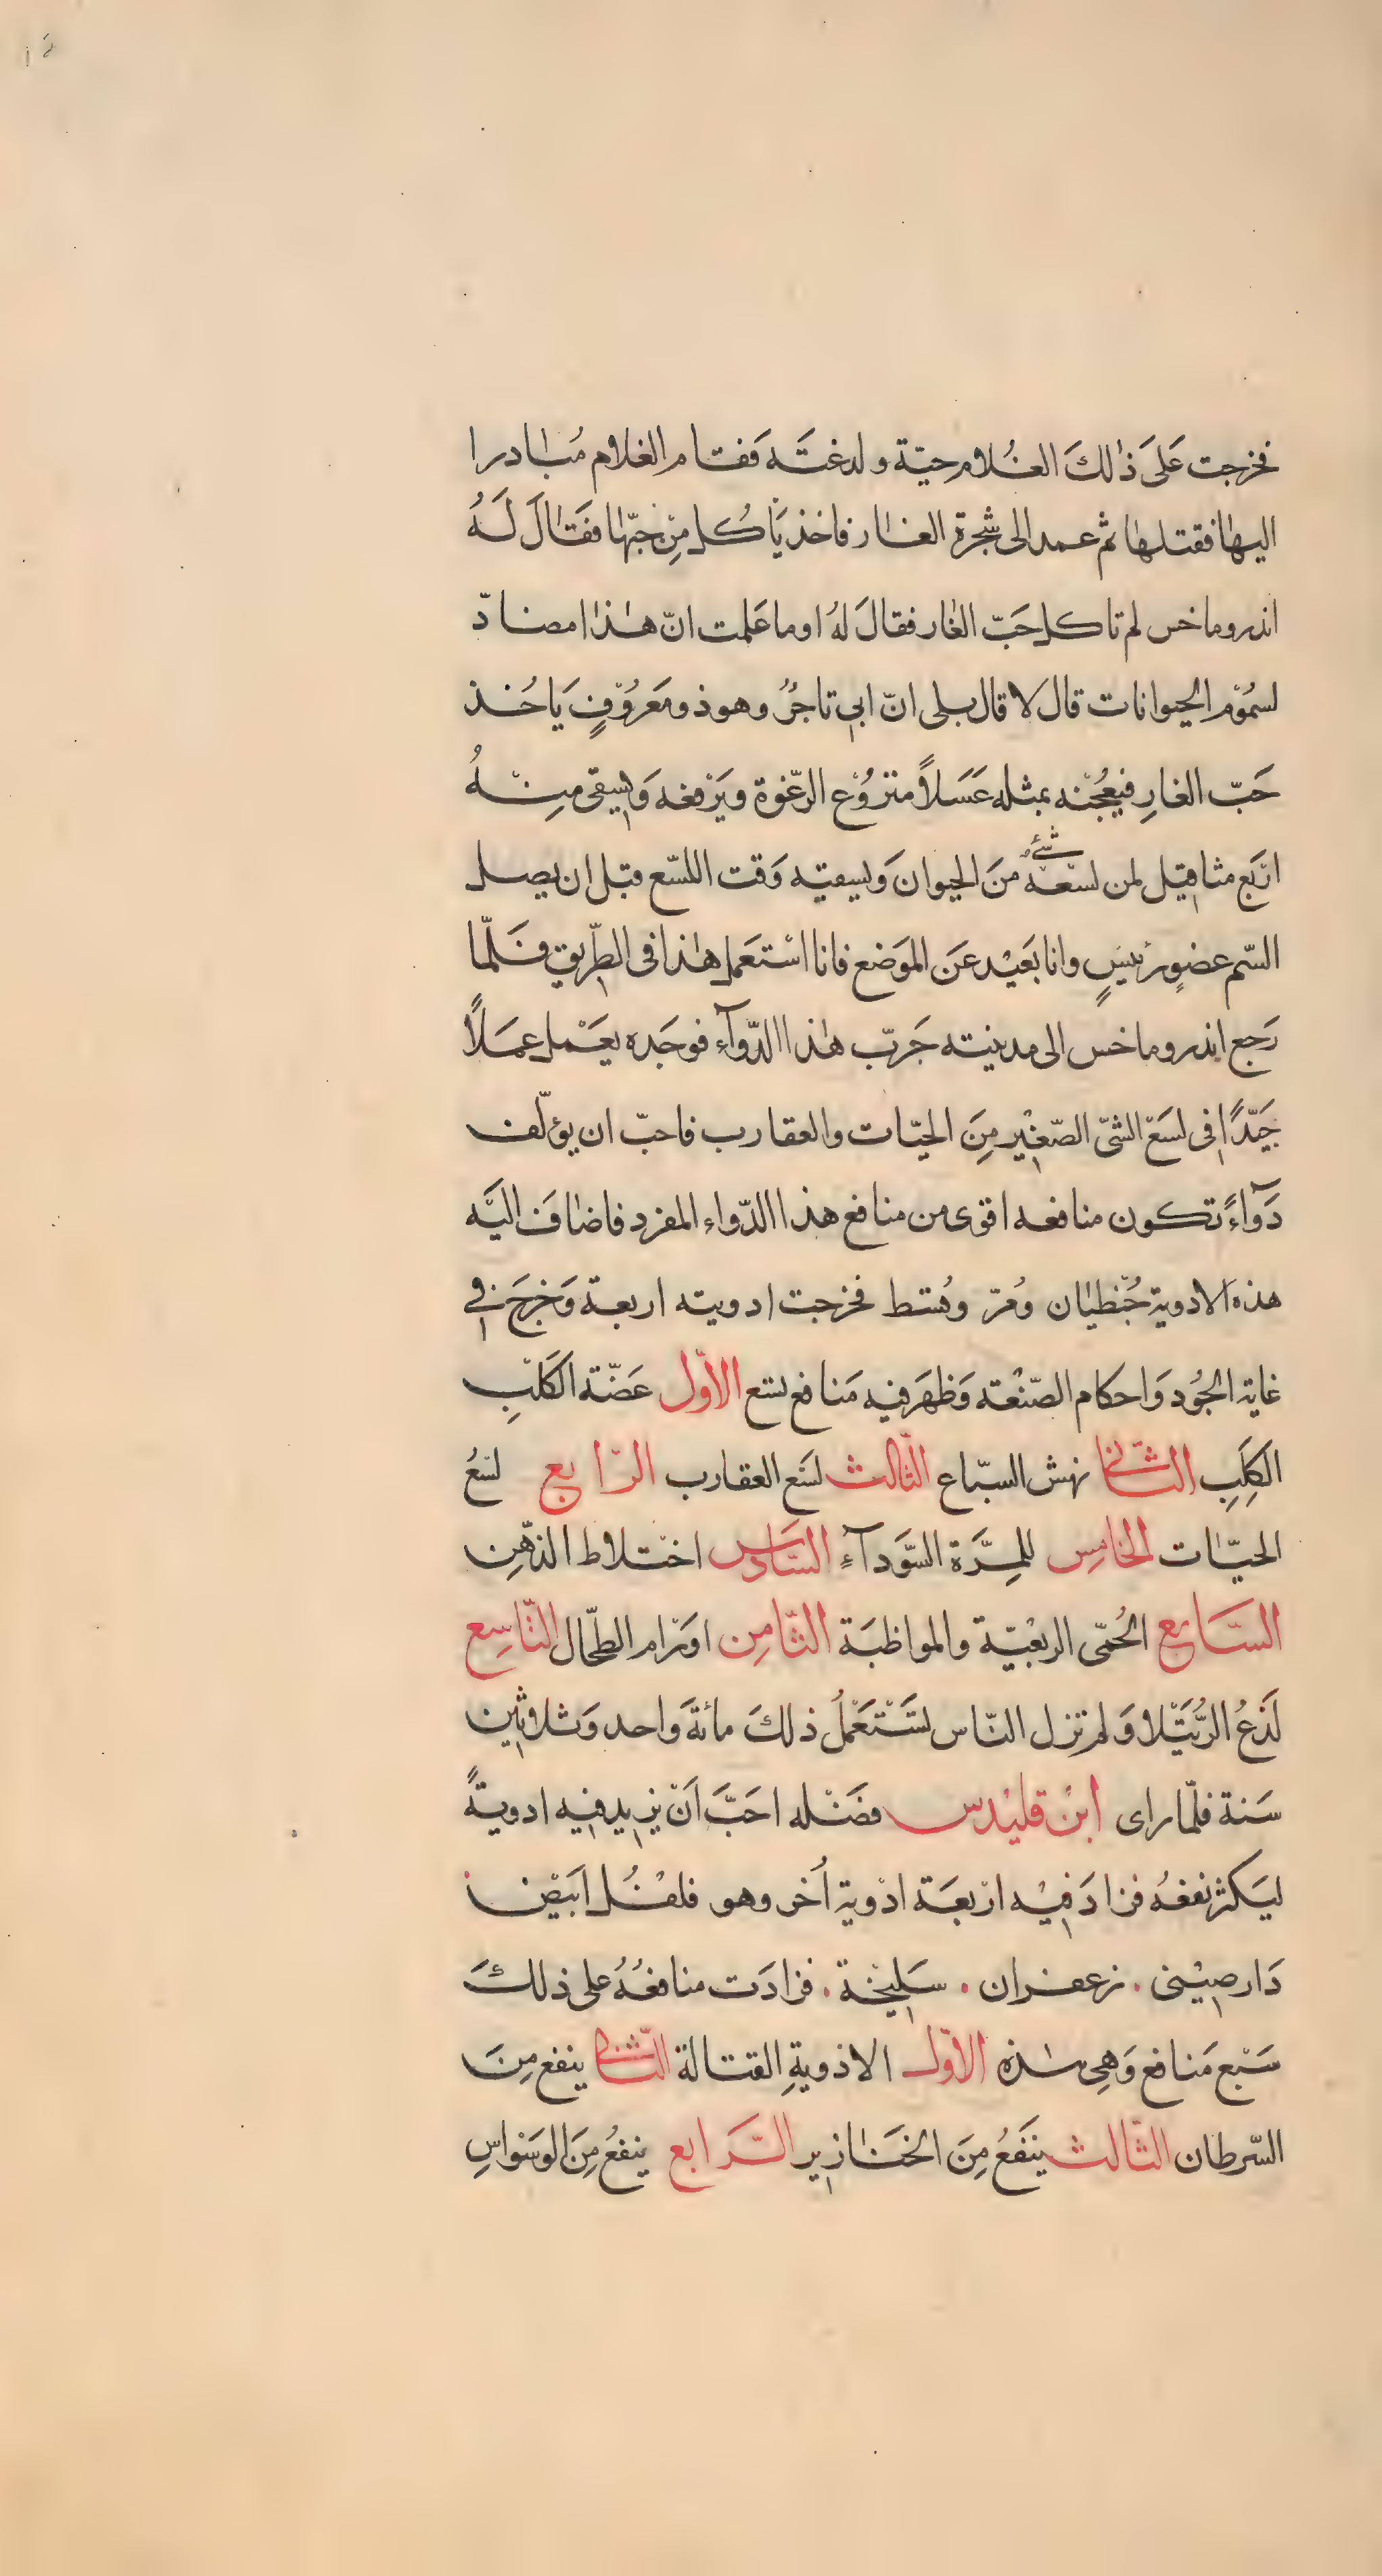 فخرجت عَلىَ ذٰالكَ الغُلام حيّة ولدغتَه فَقام الغلام مُبٰادرا
اليهٰا فقتلهٰا ثم عمد الى شجرة الغٰار فاخذ يَأكُل مِنْ حَبّهٰا فقٰالَ لَهُ
اندروماخس لم تاكل حَبّ الغٰار فقالَ لهُ اوما عَلمت انّ هٰذا مضادّ
لسُمُوْم الحيوانات قال لا قال بلى انّ ابي تاجرٌ وهو ذو مَعرُوْفٍ يَاخُذ
حَبّ الغارِ فيعُجْنه بمثله عَسَلاً منزوُع الرّغوة ويَرْفعه وَيسقى مِنْهُ
ارْبَع مثاقيل لمن لسْعهُ شئٌ منَ الحيوان وَيسقيه وَقت اللسّع قبل ان يصل
السّم عضوٍ رئيسٍ وانا بَعيْد عَن الموَضع فانا اسْتعَمل هٰذا فى الطّريق فَلمّا
رَجع اندروماخس الى مدينته جَربّ هٰذا الدّوآء فوجَده يعَمْل عمَلاً
جَيّدًا فى لسَعْ الشئ الصّغيْر مِنَ الحيّات والعقارب فاحبّ ان يؤلّف
دَوآءً تكون منافعه اقوى من منافع هذا الدّواء المفرد فاضٰافَ اليَه
هذه الادوية جُنّطيٰان ومُرّ وقُسط فخرجت ادويته اربعة وَخرجَ فى
غاية الجُود وَاحكام الصّنْعته وَظهَر فيه مَنافع تسع الاوّل عَضّة الكَلْبِ
الكَلِبِ الثّانى نهش السبّاع الثّالث لسَع العقارب الرّابع لسْعُ
الحيّات الخامِس للمِرَّة السَّودآءِ السّادس اخْتلاط الذّهْن
السَّابع الحُمّى الربعْيّة والمواظبَة الثّامِن اوَرْام الطّحال التّاسِع
لَدْغُ الرُّتَيْلا وَلم تزل النّاس تسَتَعْملُ ذلكَ مائةَ واحد وَثلاثين
سَنة فلمّا راى ابنْ قليْدس فضَلْه احَبَّ اَنْ يزيد فيه ادويةً
ليَكثر نفعهُ فزادَ فيْه ارْبعَة ادْوية اُخر وهو فلفُل ابَيْض
دَارصيْنى . زعفران . سَليْخَة . فزادَت منافعُهُ على ذلكَ
سَبْع مَنافع وَهِى هٰذه الاوّل الادْويةِ القتالة الثّانى ينفع مِنَ
السّرطان الثّالث ينَفَعُ مِنَ الخَنٰازير الرَّابع ينفعُ مِنَ الوسَوْاسِ